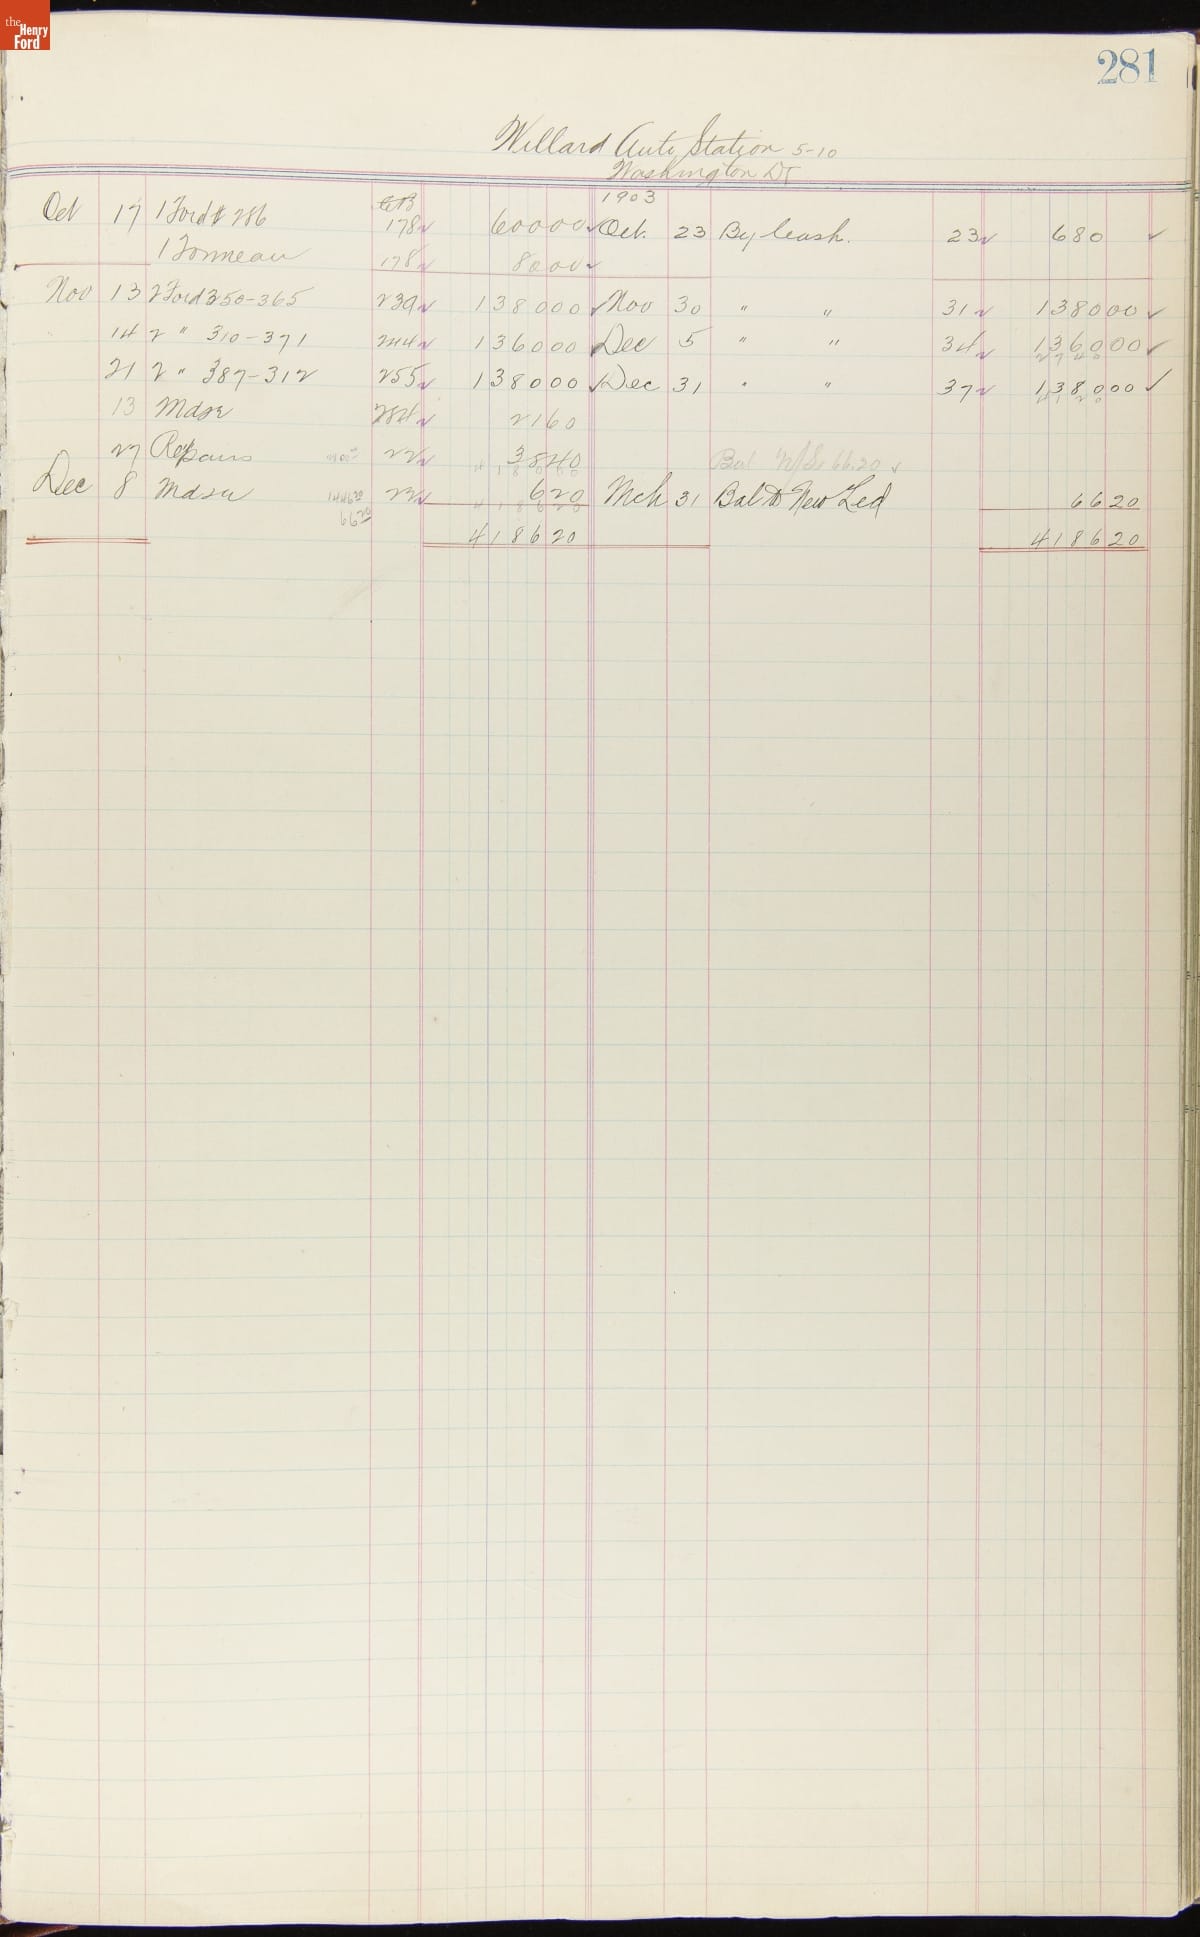 the Henry Ford
281
Willard Auto Station 5-10
Washington DC
1903
Oct 17 1 Ford # 286 178 ✓ 600 00 ✓ Oct. 23 By Cash. 23 ✓ 680 ✓
1 Tonneau 178 ✓ 80 00 ✓
Nov 13 2 Ford 350-365 239 ✓ 1380 00 ✓ Nov 30 " " 31 ✓ 1380 00 ✓
14 2 " 310-371 244 ✓ 1360 00 ✓ Dec 5 " " 34 ✓ 1360 00 ✓
2740
21 2 " 387-312 255 ✓ 1380 00 ✓ Dec 31 " " 37 ✓ 1380 00 ✓
4120
13 Mdse 284 ✓ 21 60
27 Repairs 22 ✓ 38 40 Bal 66.20 ✓
Dec 8 Mdse 22 ✓ 6 20 Mch 31 Bal to New Led 66 20
66 20
4186 20 4186 20